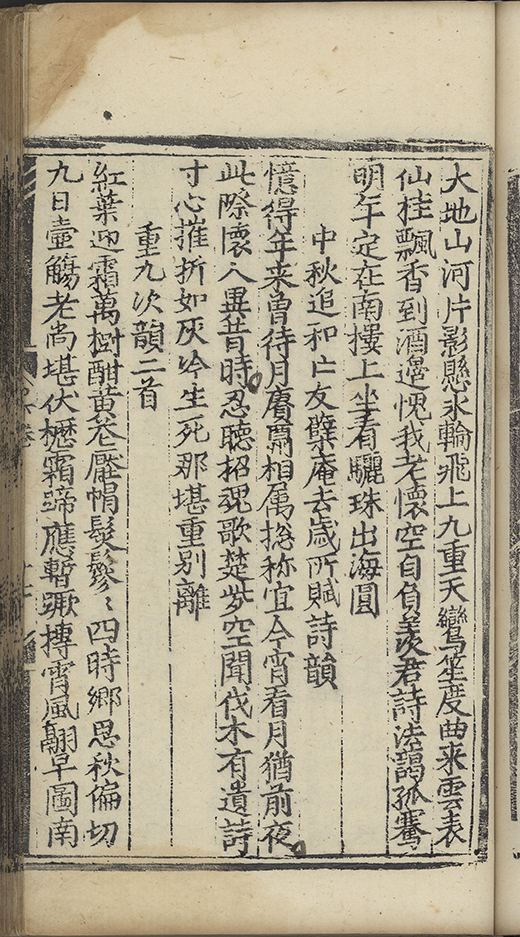 大地山河片影懸氷輪飛上九重天鸞笙度曲来雲表
仙桂飄香到酒邊愧我老懷空自負羨君詩法謁孤騫
明年定在南樓上坐看驪珠出海圓
中秋追和亡友檗庵去歲所賦詩韻
憶得年来曽待月賡酬相属捴称宜今宵看月猶前夜
此際懷人異昔時忍聽招魂歌楚些空聞伐木有遺詩
寸心摧折如灰冷生死那堪重別離
重九次韻二首
紅葉迎霜萬樹酣黄花壓帽髮鬖〻四時鄉思秋偏切
九日壺觴老尚堪伏櫪霜蹄應暫蹶摶霄風翮早圖南